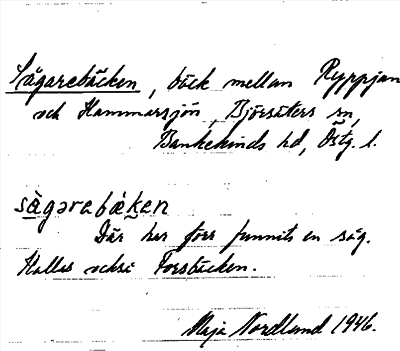 Sågarebäcken, bäck mellan Ryppjan
och Hammarsjön, Björsäters sn,
Bankekinds hd, Östg. l.
sàgarebäken
Där har förr funnits en såg.
Kallas också Forsbäcken.
Maja Nordlund 1946.